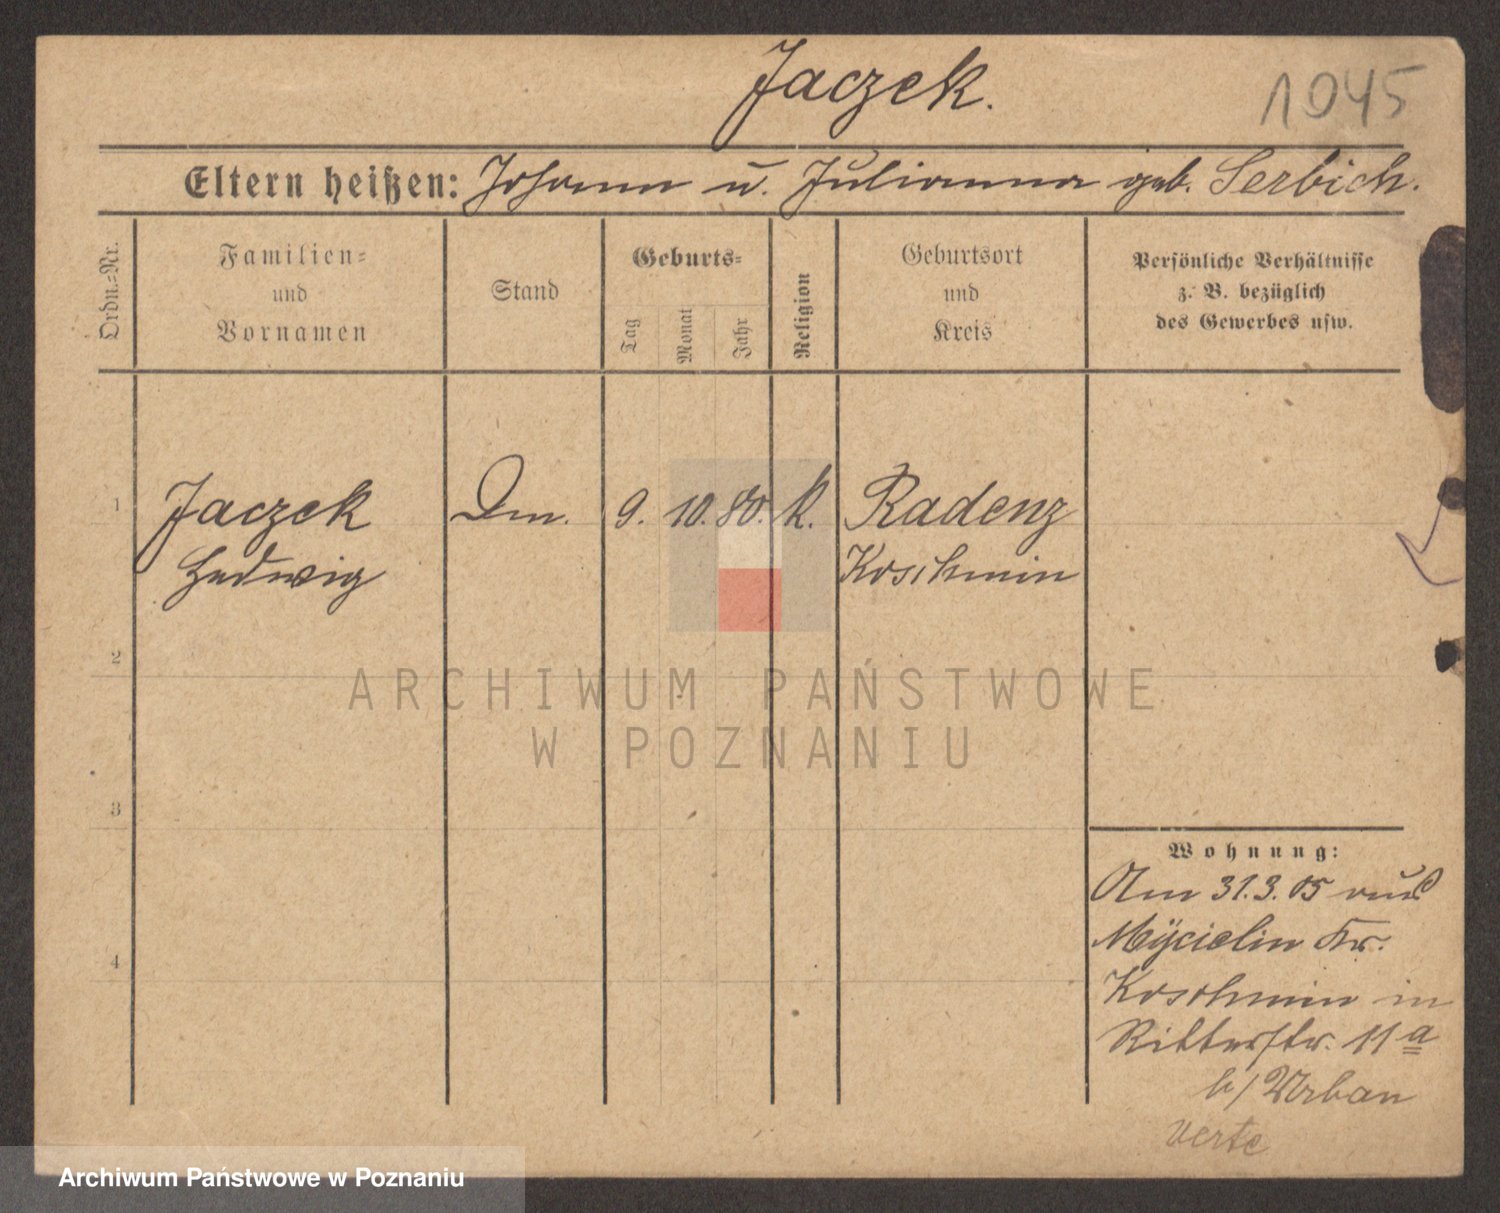 Jaczek.
1045
Eltern heißen: Johann u. Julianna geb. Serbich.
Ordn.-Nr.
Familien-
und
Vornamen
Stand
Geburts-
Tag
Monat
Jahr
Religion
Geburtsort
und
Kreis
Persönliche Verhältnisse
z. B. bezüglich
des Gewerbes usw.
1 Jaczek Dm. 9. 10. 80. k. Radenz
Hedwig Koschmin
2
ARCHIWUM PAŃSTWOWE
W POZNANIU
3
4
Wohnung:
Am 31.3.05 aus
Mÿcielin Kr.
Koschmin in
Ritterstr. 11a
b/ Urban
verte
Archiwum Państwowe w Poznaniu